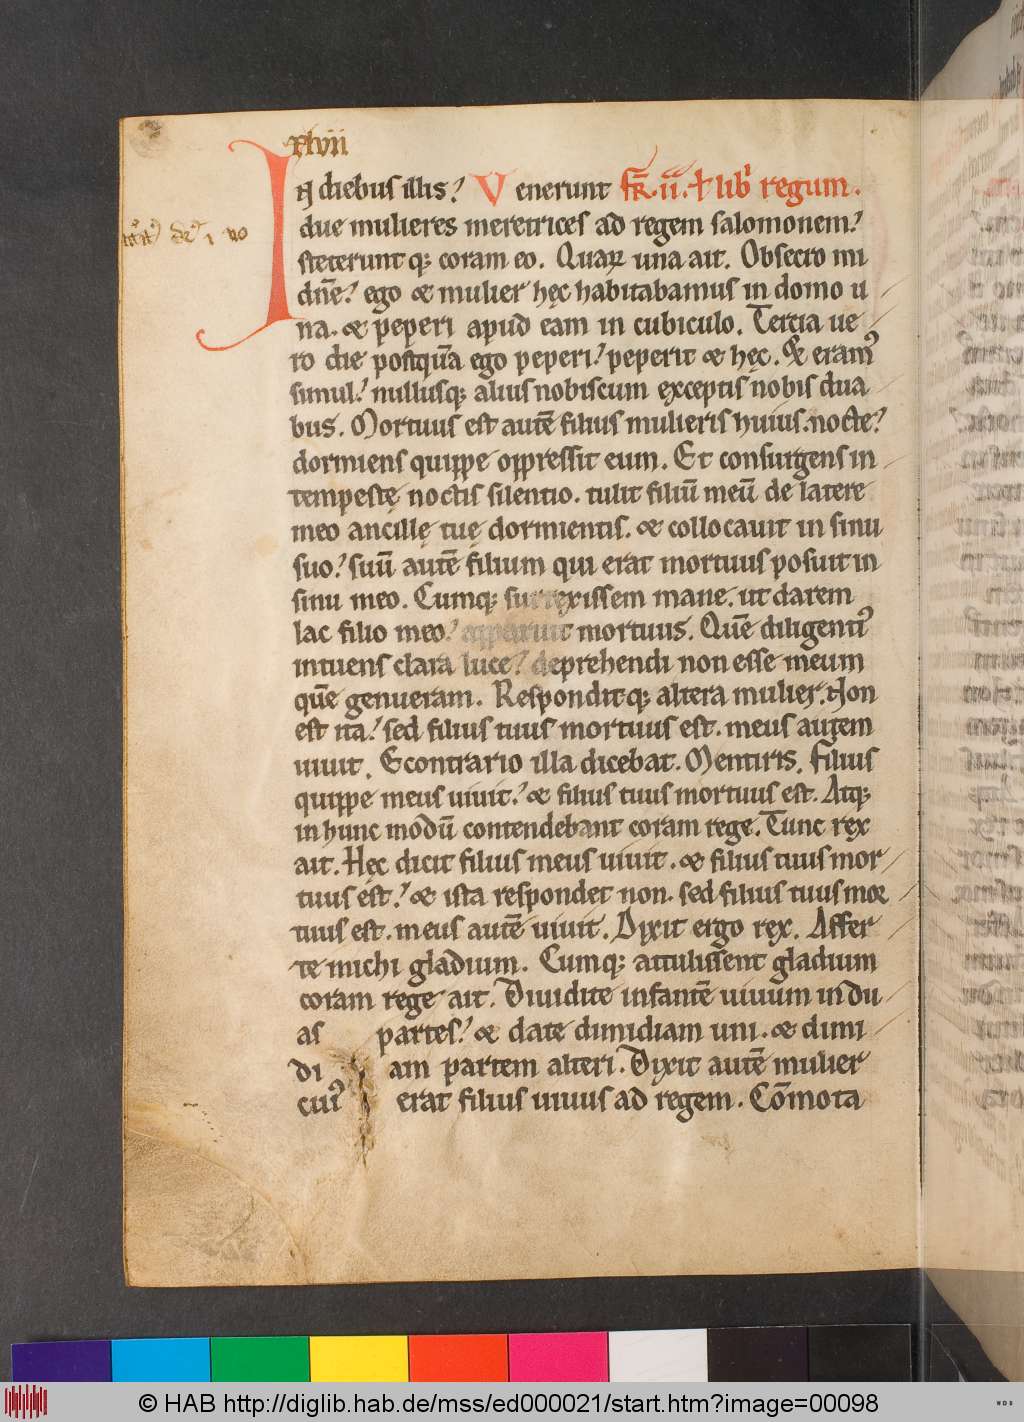 xlvii
In diebus illis? Venerunt fr̄. ii. ł lib' regum.
due mulieres meretrices ad regem salomonem?
steterunt q; coram eo. Quaꝝ una ait. Obsecro mi
dn̄e? ego & mulier hęc habitabamus in domo u
na. & peperi apud eam in cubiculo. Tertia ue
ro die postquā ego peperi? peperit & hęc. & eram᾽
simul? nullusq; alius nobiscum exceptis nobis dua
bus. Mortuus est autē filius mulieris huius. nocte?
dormiens quippe oppressit eum. Et consurgens in
tempestę noctis silentio. tulit filiū meū de latere
meo ancillę tuę dormientis. & collocauit in sinu
suo? suū autē filium qui erat mortuus posuit in
sinu meo. Cumq; surrexissem mane. ut darem
lac filio meo? apparuit mortuus. Quē diligenti᾽
intuens clara luce? deprehendi non esse meum
quē genueram. Respondit q; altera mulier. Non
est ita? sed filius tuus mortuus est. meus autem
uiuit. Econtrario illa dicebat. Mentiris. Filius
quippe meus uiuit? & filius tuus mortuus est. Atq;
in hunc modū contendebant coram rege. Tunc rex
ait. Hęc dicit filius meus uiuit. & filius tuus mor
tuus est? & ista respondet non. sed filius tuus mor
tuus est. meus autē uiuit. Dixit ergo rex. Affer
te michi gladium. Cumq; attulissent gladium
coram rege ait. Diuidite infantē uiuum in du
as partes? & date dimidiam uni. & dimi
di am partem alteri. Dixit autē mulier
cui᾽ erat filius uiuus ad regem. Cōmota
© HAB http://diglib.hab.de/mss/ed000021/start.htm?image=00098